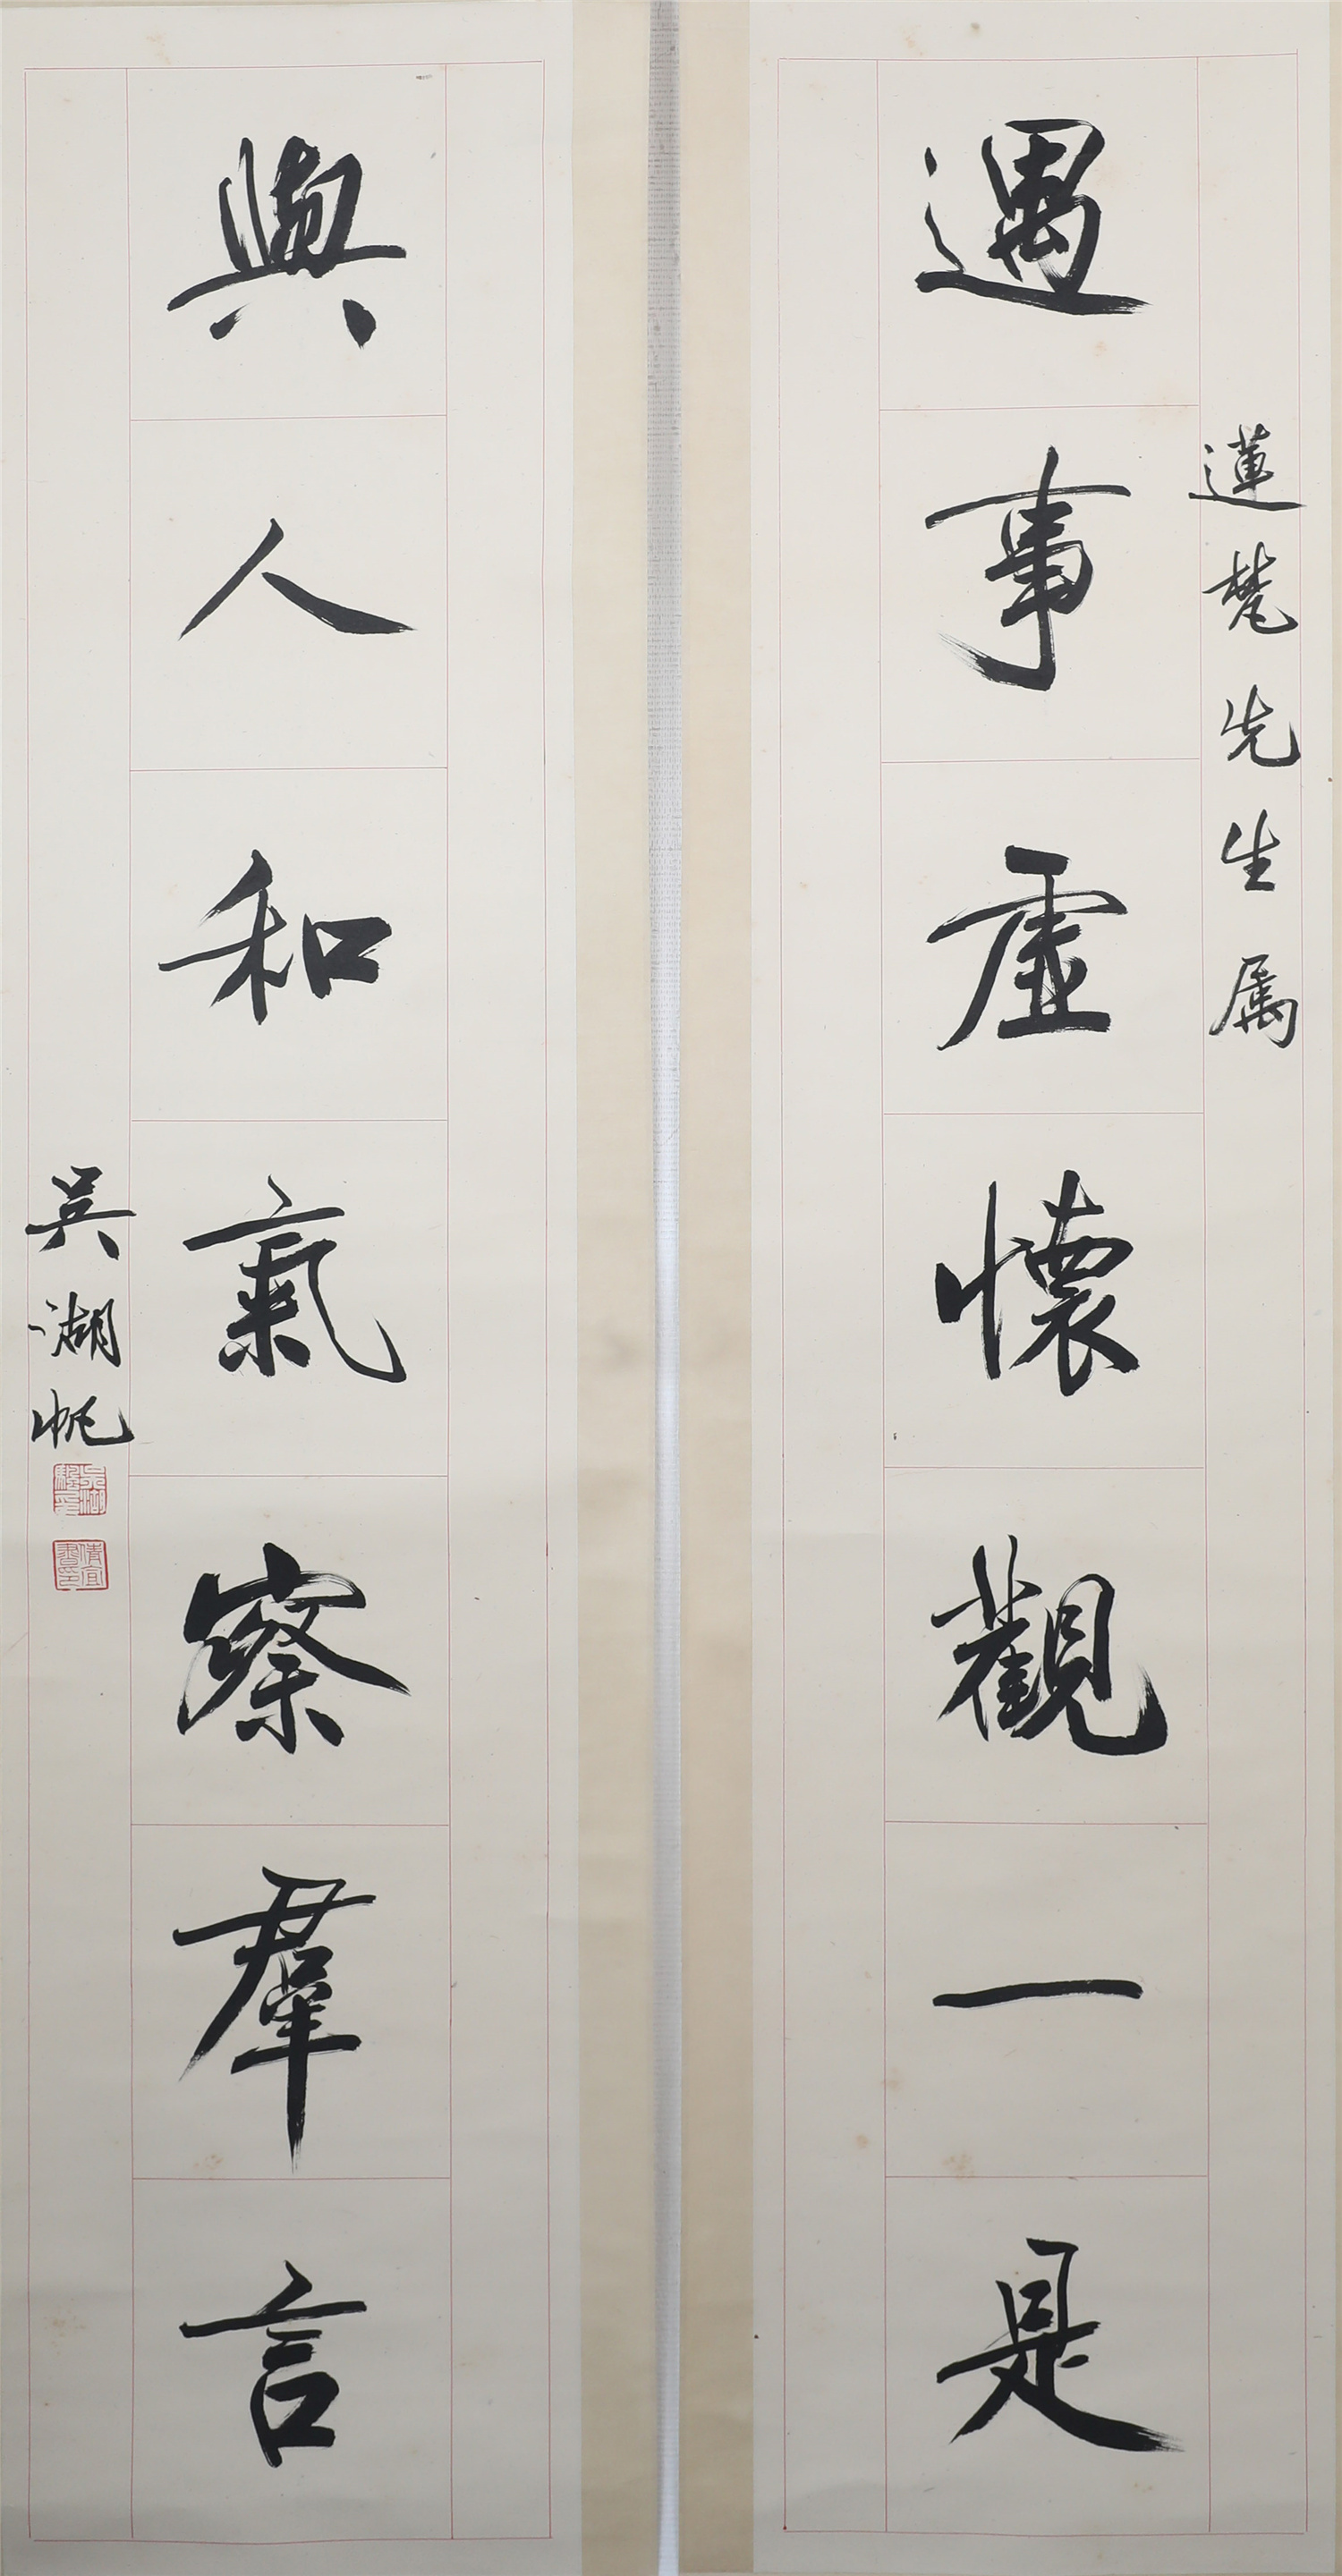 蓮梵先生属
遇事虛懷觀一是
與人和氣察羣言
吳湖帆
吳湖驎印
倩宜書印